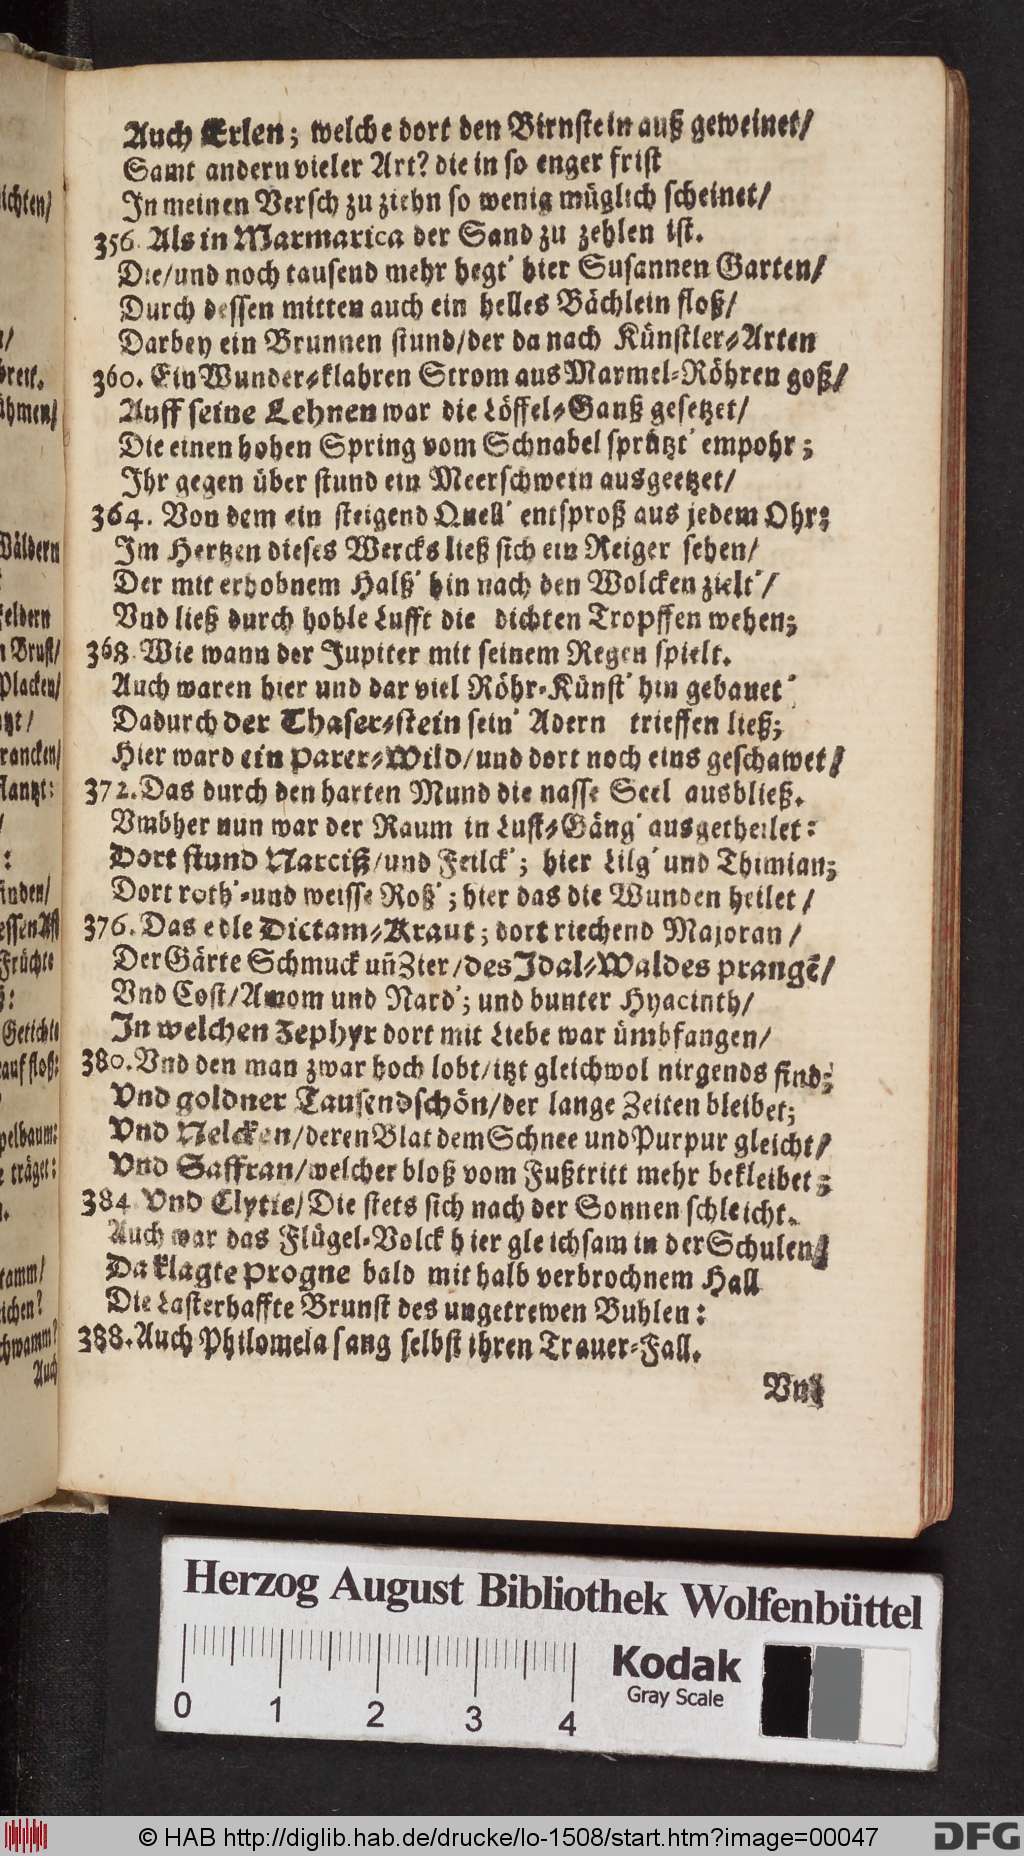 Auch Erlen; welche dort den Birnstein auß geweinet/
Samt andern vieler Art? die in so enger frist
In meinen Versch zu ziehn so wenig müglich scheinet/
356. Als in Marmarica der Sand zu zehlen ist.
Die/und noch tausend mehr hegt' hier Susannen Garten/
Durch dessen mitten auch ein helles Bächlein floß/
Darbey ein Brunnen stund/der da nach Künstler-Arten
360. Ein Wunder-klahren Strom aus Marmel-Röhren goß/
Auff seine Lehnen war die Löffel-Ganß gesetzet/
Die einen hohen Spring vom Schnabel sprützt' empohr;
Ihr gegen über stund ein Meerschwein ausgeetzet/
364. Von dem ein steigend Quell' entsproß aus jedem Ohr:
Im Hertzen dieses Wercks ließ sich ein Reiger sehen/
Der mit erhobnem Halß' hin nach den Wolcken zielt'/
Vnd ließ durch hohle Lufft die dichten Tropffen wehen;
368. Wie wann der Jupiter mit seinem Regen spielt.
Auch waren hier und dar viel Röhr-Künst' hin gebauet'
Dadurch der Thaser-stein sein' Adern trieffen ließ;
Hier ward ein Parer-Wild/und dort noch eins geschawet/
372. Das durch den harten Mund die nasse Seel ausbließ.
Vmbher nun war der Raum in Lust-Gäng' ausgetheilet:
Dort stund Narciß/und Feilck'; hier Lilg' und Thimian;
Dort roth'-und weisse Roß'; hier das die Wunden heilet/
376. Das edle Dictam-Kraut; dort riechend Majoran/
Der Gärte Schmuck uñ Zier/des Idal-Waldes prangẽ/
Vnd Cost/Amom und Nard'; und bunter Hyacinth/
In welchen Zephyr dort mit Liebe war ümbfangen/
380. Vnd den man zwar hoch lobt/itzt gleichwol nirgends find;
Vnd goldner Tausendschön/der lange Zeiten bleibet;
Vnd Nelcken/deren Blat dem Schnee und Purpur gleicht/
Vnd Saffran/welcher bloß vom Fußtritt mehr bekleibet;
384. Vnd Clytie/Die stets sich nach der Sonnen schleicht.
Auch war das Flügel-Volck hier gleichsam in der Schulen/
Da klagte Progne bald mit halb verbrochnem Hall
Die Lasterhaffte Brunst des ungetrewen Buhlen:
388. Auch Philomela sang selbst ihren Trauer-Fall.
Vnd
ichten/
breit.
ühmen/
Wäldern
feldern
n Brust/
Placken/
rancken/
flantzt:
finden/
essen Ast
Früchte
Getichte
auf floß:
pelbaum:
träget:
tamm/
ichen?
chwamm?
Auch
Herzog August Bibliothek Wolfenbüttel
0 1 2 3 4
Kodak
Gray Scale
© HAB http://diglib.hab.de/drucke/lo-1508/start.htm?image=00047
DFG